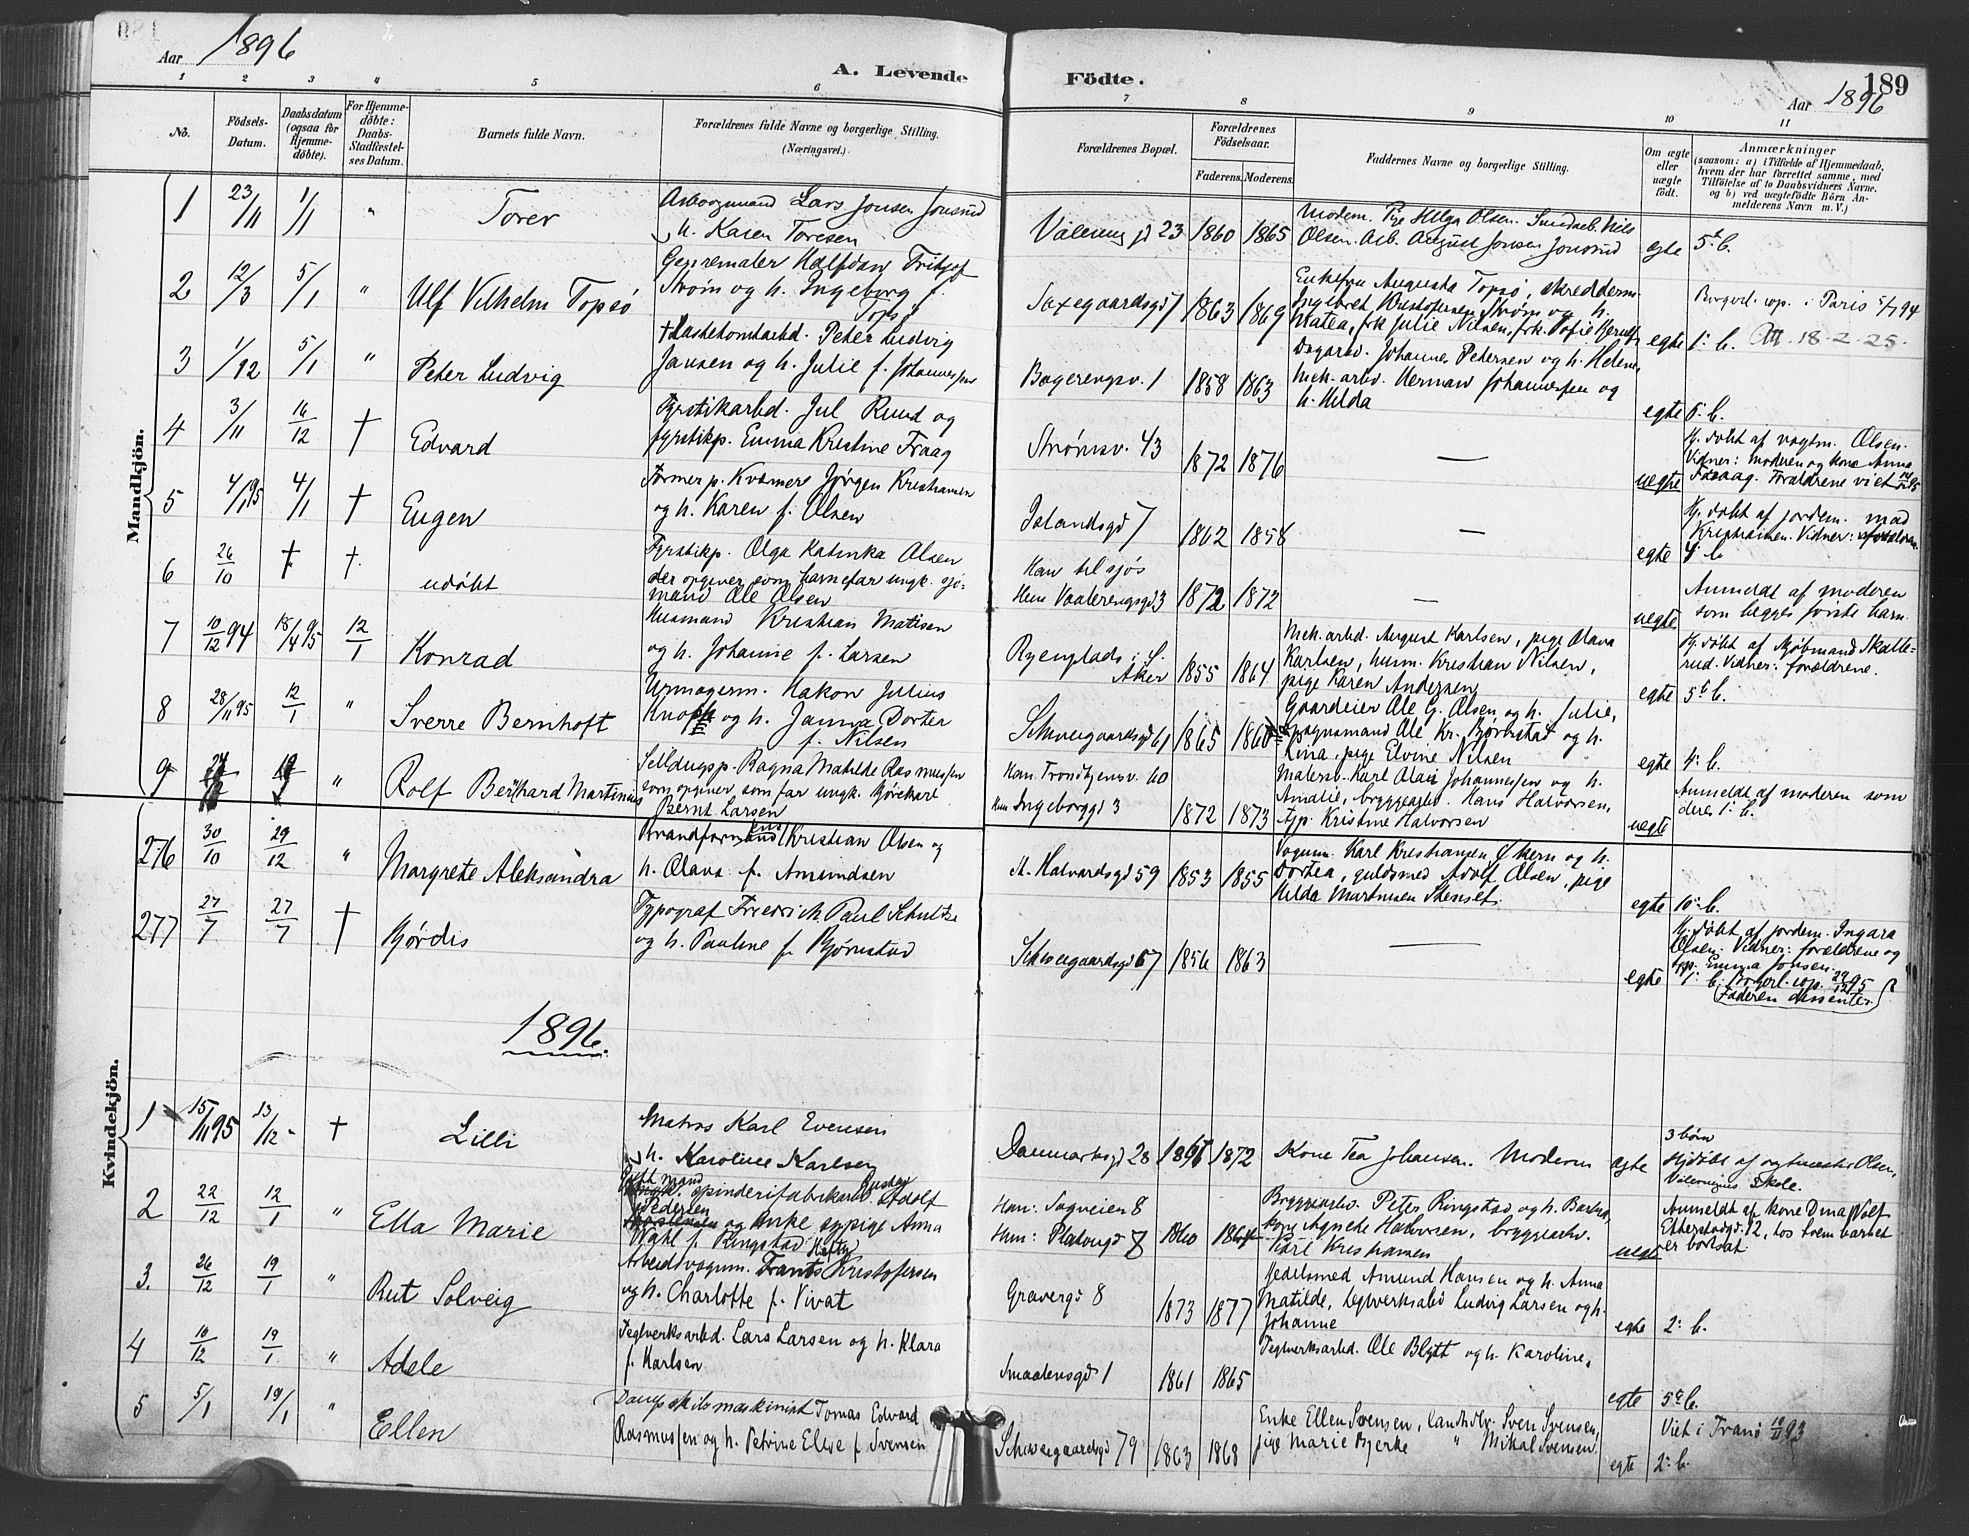 Aar 1896
A. Levende Födte.
189
Aar 1896
1 2 3 " 5 6 7 8 9 10 11
No.
Födsels-Datum.
Daabsdatum (ogsaa for Hjemme-döbte).
For Hjemme-döbte: Daabs-Stadfæstel-ses Datum.
Barnets fulde Navn.
Forældrenes fulde Navne og borgerlige Stilling. (Næringsvei.)
Forældrenes Bopæl.
Forældrenes Födselsaar.
Faderens. Moderens.
Faddernes Navne og borgerlige Stilling.
Om ægte eller uægte födt.
Anmærkninger (saasom: a) i Tilfælde af Hjemmedaab, hvem der har forrettet samme, med Tilföielse af to Daabsvidners Navne, og b) ved uægtefödte Börn An-melderens Navn m. V.)
Mandkjön.
1 23/11 1/1 " Torer
Lars Jonsen Jonsrud
h. Karen Toresen
Vålereng gd 23 1860 1865
Modern. Pige Helga Olsen. Nils
Olsen. Arb. August Jonsen Jonsrud
egte 5t b.
2 12/3 5/1 " Ulf Vilhelm Topsö
Genremaler Halfdan Fritjof
Strøm og h. Ingeborg f.
Topsö
Saxegaardsgd 7 1863 1869
Enkefru Augusta Topsö, skredderm.
Ingebret Kristofersen Strøm og h.
Matea, frk Julie Nilsen, frk. Sofie
egte 1: b.
Borgerl. cop. i Paris 5/7 94
Att. 18-2-25.
3 1/12 5/1 " Peter Ludvig
Peter Ludvig
Jansen og h. Julie f. Johannessen
Bøgerengsv. 1 1858 1863
Dagarb. Johannes Petersen og h. Helene,
Mek. arb. Herman Johannessen og
h. Hilda
egte 6: b.
4 3/11 16/12 † Edvard
Fyrstikarbd. Jul Ruud og
fyrstikp. Emma Kristine Fraag
Strømsv. 43 1872 1876 —
uegte
Hj. døbt af vagtm. Olsen.
Vidner: moderen og kone Anna
Fraaag. Forældrene viet 95
5 4/1 95 4/1 † Eugen
Former p. Kværner Jørgen Kristiansen
og h. Karen f. Olsen
Islandsgd 7 1862 1858 —
egte
Hj. døbt af jordem. mad
Kristiansen. Vidner: forældrene.
4 b
6 26/10 † † udøbt
Fyrstikp. Olga Katinka Olsen
der opgiver som barnefar ungk. sjö-
mand Ole Olsen
Han til sjøs
Hun Vaalerengsgd 3 1872 1872 —
uegte
Anmeldt af moderen
som begges første barn.
7 10/12 94 18/4 95 12/1 Konrad
Husmand Kristian Matisen
og h. Johanne f. Larsen
Ryenplads i Ø. Aker 1855 1864
Mek. arbd. August Karlsen, pige Olava
Karlsen, husm. Kristian Nilsen,
pige Karen Andersen
egte
Hj. døbt af Kjøbmand Skulle-
rud. Vidner: forældrene.
5t b.
8 28/11 95 12/1 " Sverre Bernhoft
Urmagerm. Hakon Julius
Knoph og h. Janna Dortea
f. Nilsen
Schweigaardsgd 61 1865
Gaardeier Ole G. Olsen og h. Julie,
Vognmand Ole Kr. Bjørnstad og h.
Lina, pige Elvine Nilsen
egte 4: b.
9 " Rolf Bernhard Martinus
Seildugsp. Ragna Matilde Rasmussen
som opgiver som far ungk. Gjørtkarl
Bernt Larsen
Han Trondhjemsv. 60
Hun Ingeborggd 3 1872 1873
Malersv. Karl Olai Johannessen og h.
Amalie, bryggearb. Hans Halvorsen,
typ. Kristine Halvorsen
uegte
Anmeldt af moderen som
deres 1: b.
276 30/10 29/12 " Margrete Aleksandra
Brandformand Kristian Olsen og
h. Olava f. Amundsen
St. Halvardsgd 59 1853 1855
Vognm. Karl Kristiansen Økern og h.
Dortea, guldsmed Adolf Olsen, pige
Hilda Martinsen Stenset.
egte 10: b.
277 27/7 27/7 † Hjørdis
Typograf Fredrich Paul Schultze
og h. Pauline f. Bjørnstad
Schweigaardsgd 67 1856 1863 —
egte
Hj. døbt af jordem. Ingara
Olsen. Vidner: forældrene og
typ. Emma Jonsen.
7. b. Borgerl. cop. 29/12 95
(Faderen dissenter.)
1896.
Kvindekjön.
1 15/11 95 13/12 - † Lilli
Matros Karl Evensen
h. Karoline Karlsen
Danmarksgd 28 1872
Kone Tea Johansen. Modern
egte
3 børn
Hjdøbt af vagtmester Olsen,
Vålerengens Skole.
2 22/12 12/1 " Ella Marie
Gift mand Gustav
spinderifabrikarb. Adolf
Pedersen
og Enke sypige Anna
Wahl f. Ringstad
Han: Sagveien 8
Hun: Platougd 7 1860 1864
Bryggearb. Peter Ringstad og h. Barbra,
kone Agnete Halvorsen, bryggearb.
Karl Kristiansen
uegte
Anmeldt af kone Dina Wolf
Etterstadgd. 12, hos hvem barnet
er bortsat
3. 26/12 19/1 " Rut Solveig
Arbeidsvognm. Frants Kristofersen
og h. Charlotte f. Vivat
Gravergd 8 1873 1877
Jedelsmed Amund Hansen og h. Anna
Matilde, teglverksarbd Ludvig Larsen og h.
Johanne
egte 2: b.
4 10/12 19/1 " Adele
Teglverksarbd. Lars Larsen og h. Klara
f. Karlsen
Smaalensgd 1 1861 1865
Teglverksarbd. Ole Blytt og h. Karoline,
egte 5: b.
5 5/1 19/1 " Ellen
Dampskibsmaskinist Tomas Edvard
Rasmussen og h. Petrine Elise f. Svensen
Schweigaardsgd 79 1863 1868
Enke Ellen Svensen, Landhdlr. Sven Svensen,
pige Marie Bjerke " Mikal Svensen.
egte
Viet i Tranø 10/11 93
2: b.